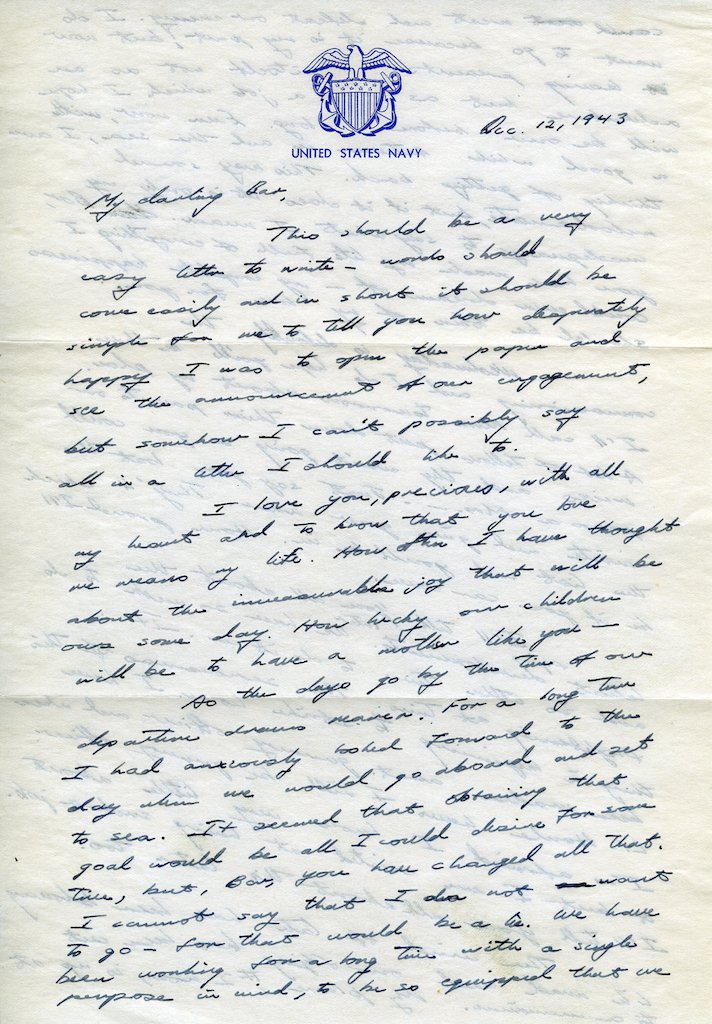 UNITED STATES NAVY
Dec. 12, 1943
My darling Bar,
This should be a very
easy letter to write — words should
come easily and in short it should be
simple for me to tell you how desperately
happy I was to open the paper and
see the announcement of our engagement,
but somehow I can't possibly say
all in a letter I should like to.
I love you, precious, with all
my heart and to know that you love
me means my life. How often I have thought
about the immeasurable joy that will be
ours some day. How lucky our children
will be to have a mother like you —
As the days go by the time of our
departure draws nearer. For a long time
I had anxiously looked forward to the
day when we would go aboard and set
to sea. It seemed that obtaining that
goal would be all I could desire for some
time, but, Bar, you have changed all that.
I cannot say that I do not want
to go — for that would be a lie. We have
been working for a long time with a single
purpose in mind, to be so equipped that we